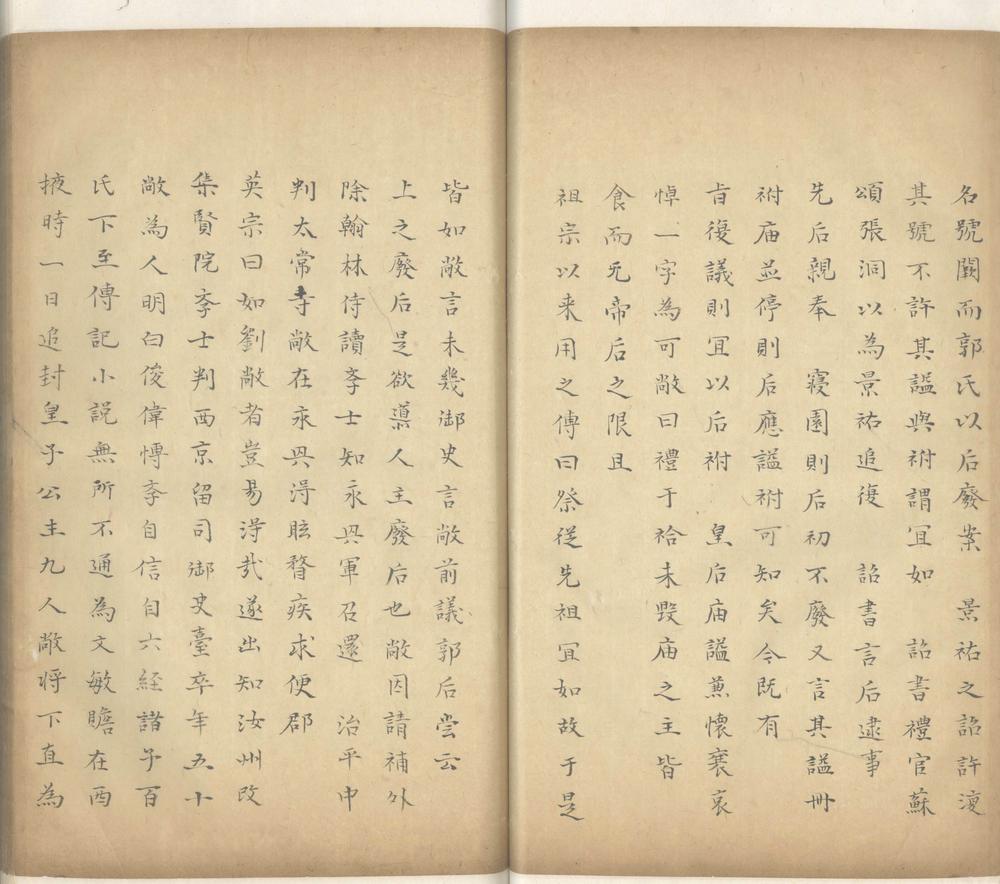 名號闕而郭氏以后廢案　景祐之詔許復
其號不許其謚與祔謂冝如　詔書禮官蘇
頌張洞以為景祐追復　詔書言后逮事
先后親奉　寢園則后初不廢又言其謚冊
祔庙並停則后應謚祔可知矣今既有
旨復議則冝以后祔　皇后庙謚蕙懷褒哀
悼一字為可敞曰禮于祫未毀庙之主皆
食而无帝后之限且
祖宗以来用之傳曰祭從先祖冝如故于是
皆如敞言未幾御史言敞前議郭后尝云
上之廢后是欲導人主廢后也敞因請補外
除翰林侍讀斈士知永興軍召還　治平中
判太常寺敞在永興淂眩瞀疾求便郡
英宗曰如劉敞者豈易淂㢤遂出知汝州改
集賢院斈士判西京留司御史臺卒年五十
敞為人明白俊偉愽斈自信自六経諸子百
氏下至傳記小説無所不通為文敏贍在西
掖時一日追封皇子公主九人敞将下直為